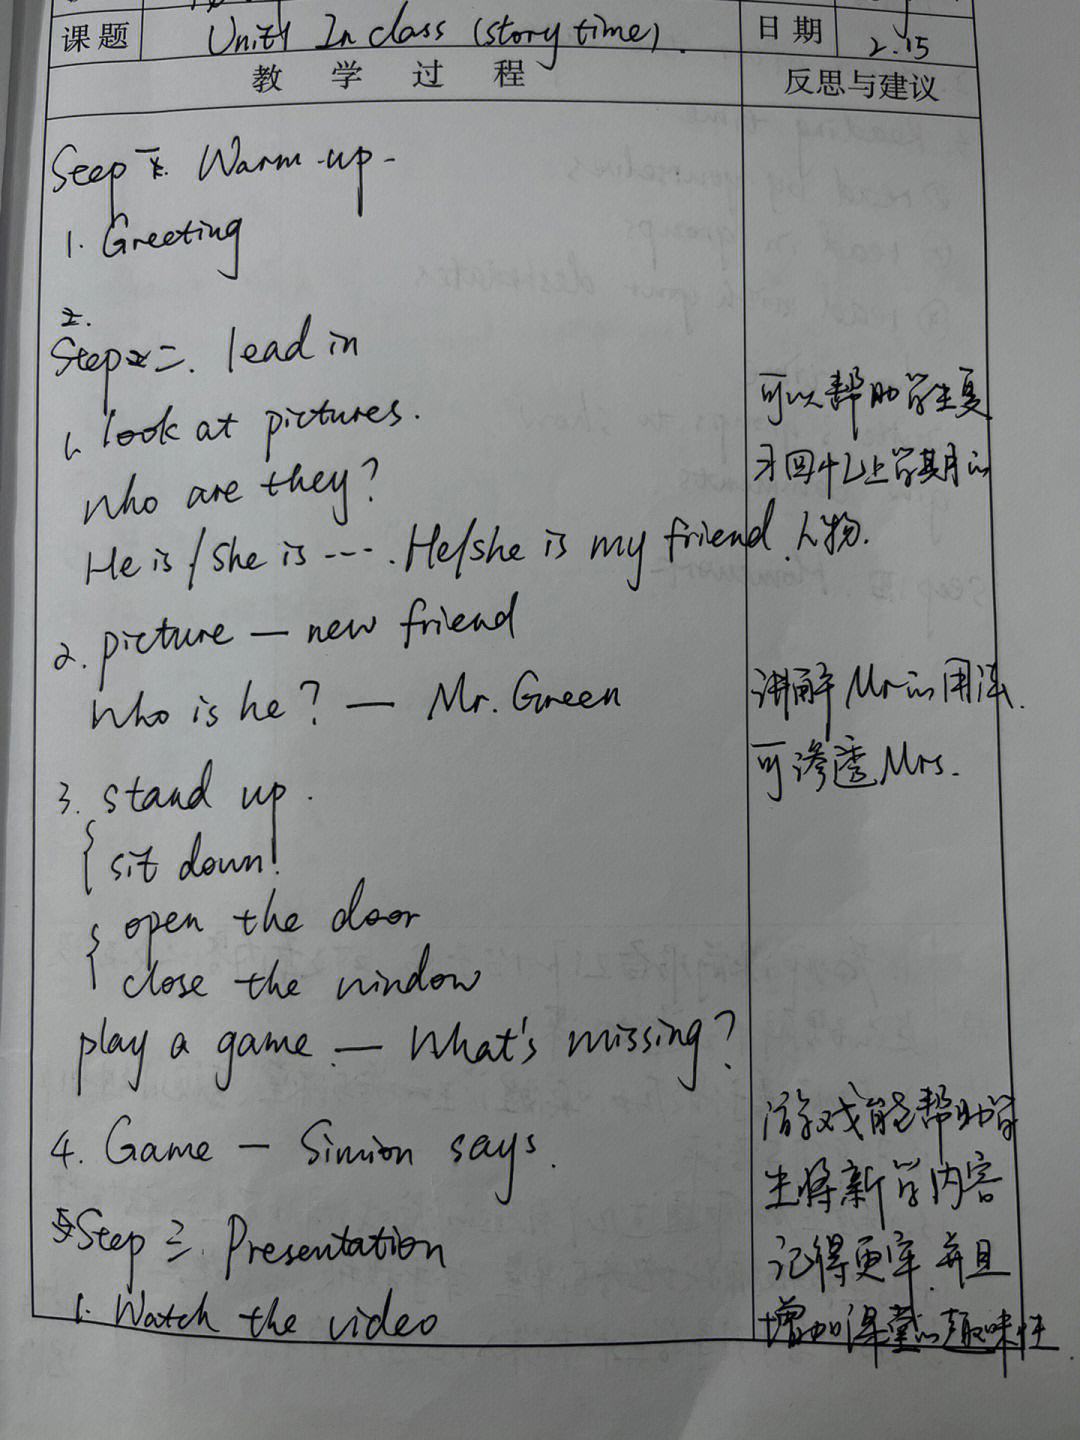 课题 Unit1 In class (story time). 日期 2.15
教学过程 反思与建议
Step 一. Warm-up-
1. Greeting
2.
Step 二. lead in
1. look at pictures.
Who are they?
He is / She is ---. He/she is my friend.
2. picture — new friend
Who is he? — Mr. Green
3. stand up.
sit down!
open the door
close the window
play a game — What's missing?
4. Game — Simion says.
Step 三. Presentation
1. Watch the video
可以帮助学生复
习回忆上学期的
人物.
讲解Mr的用法.
可渗透Mrs.
游戏能帮助学
生将新学内容
记得更牢.并且
增加课堂的趣味性.